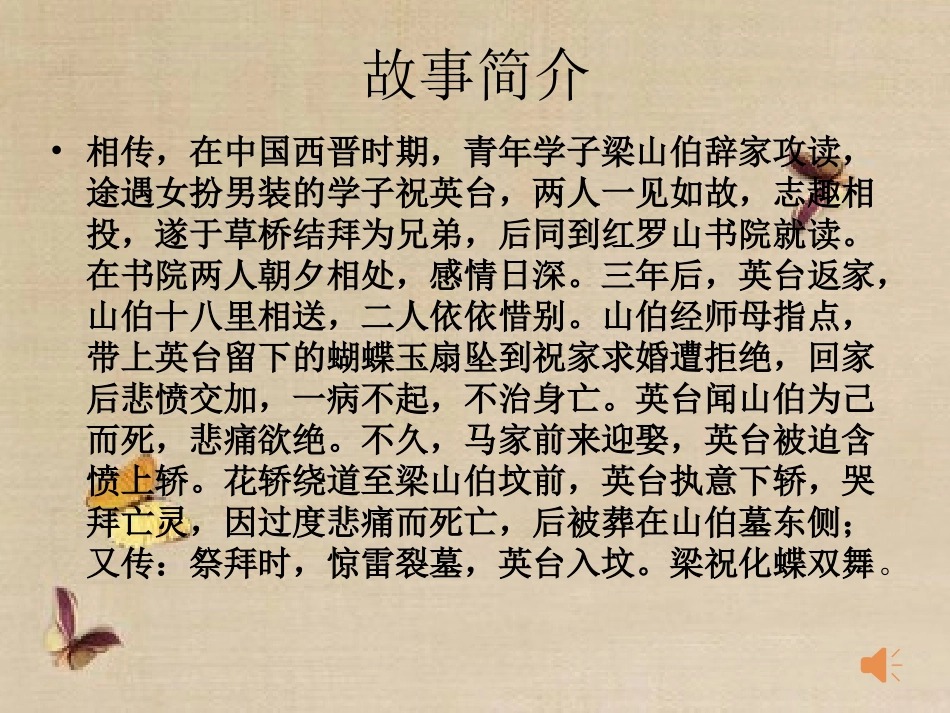 故事简介
• 相传，在中国西晋时期，青年学子梁山伯辞家攻读，
途遇女扮男装的学子祝英台，两人一见如故，志趣相
投，遂于草桥结拜为兄弟，后同到红罗山书院就读。
在书院两人朝夕相处，感情日深。三年后，英台返家，
山伯十八里相送，二人依依惜别。山伯经师母指点，
带上英台留下的蝴蝶玉扇坠到祝家求婚遭拒绝，回家
后悲愤交加，一病不起，不治身亡。英台闻山伯为己
而死，悲痛欲绝。不久，马家前来迎娶，英台被迫含
愤上轿。花轿绕道至梁山伯坟前，英台执意下轿，哭
拜亡灵，因过度悲痛而死亡，后被葬在山伯墓东侧；
又传：祭拜时，惊雷裂墓，英台入坟。梁祝化蝶双舞。